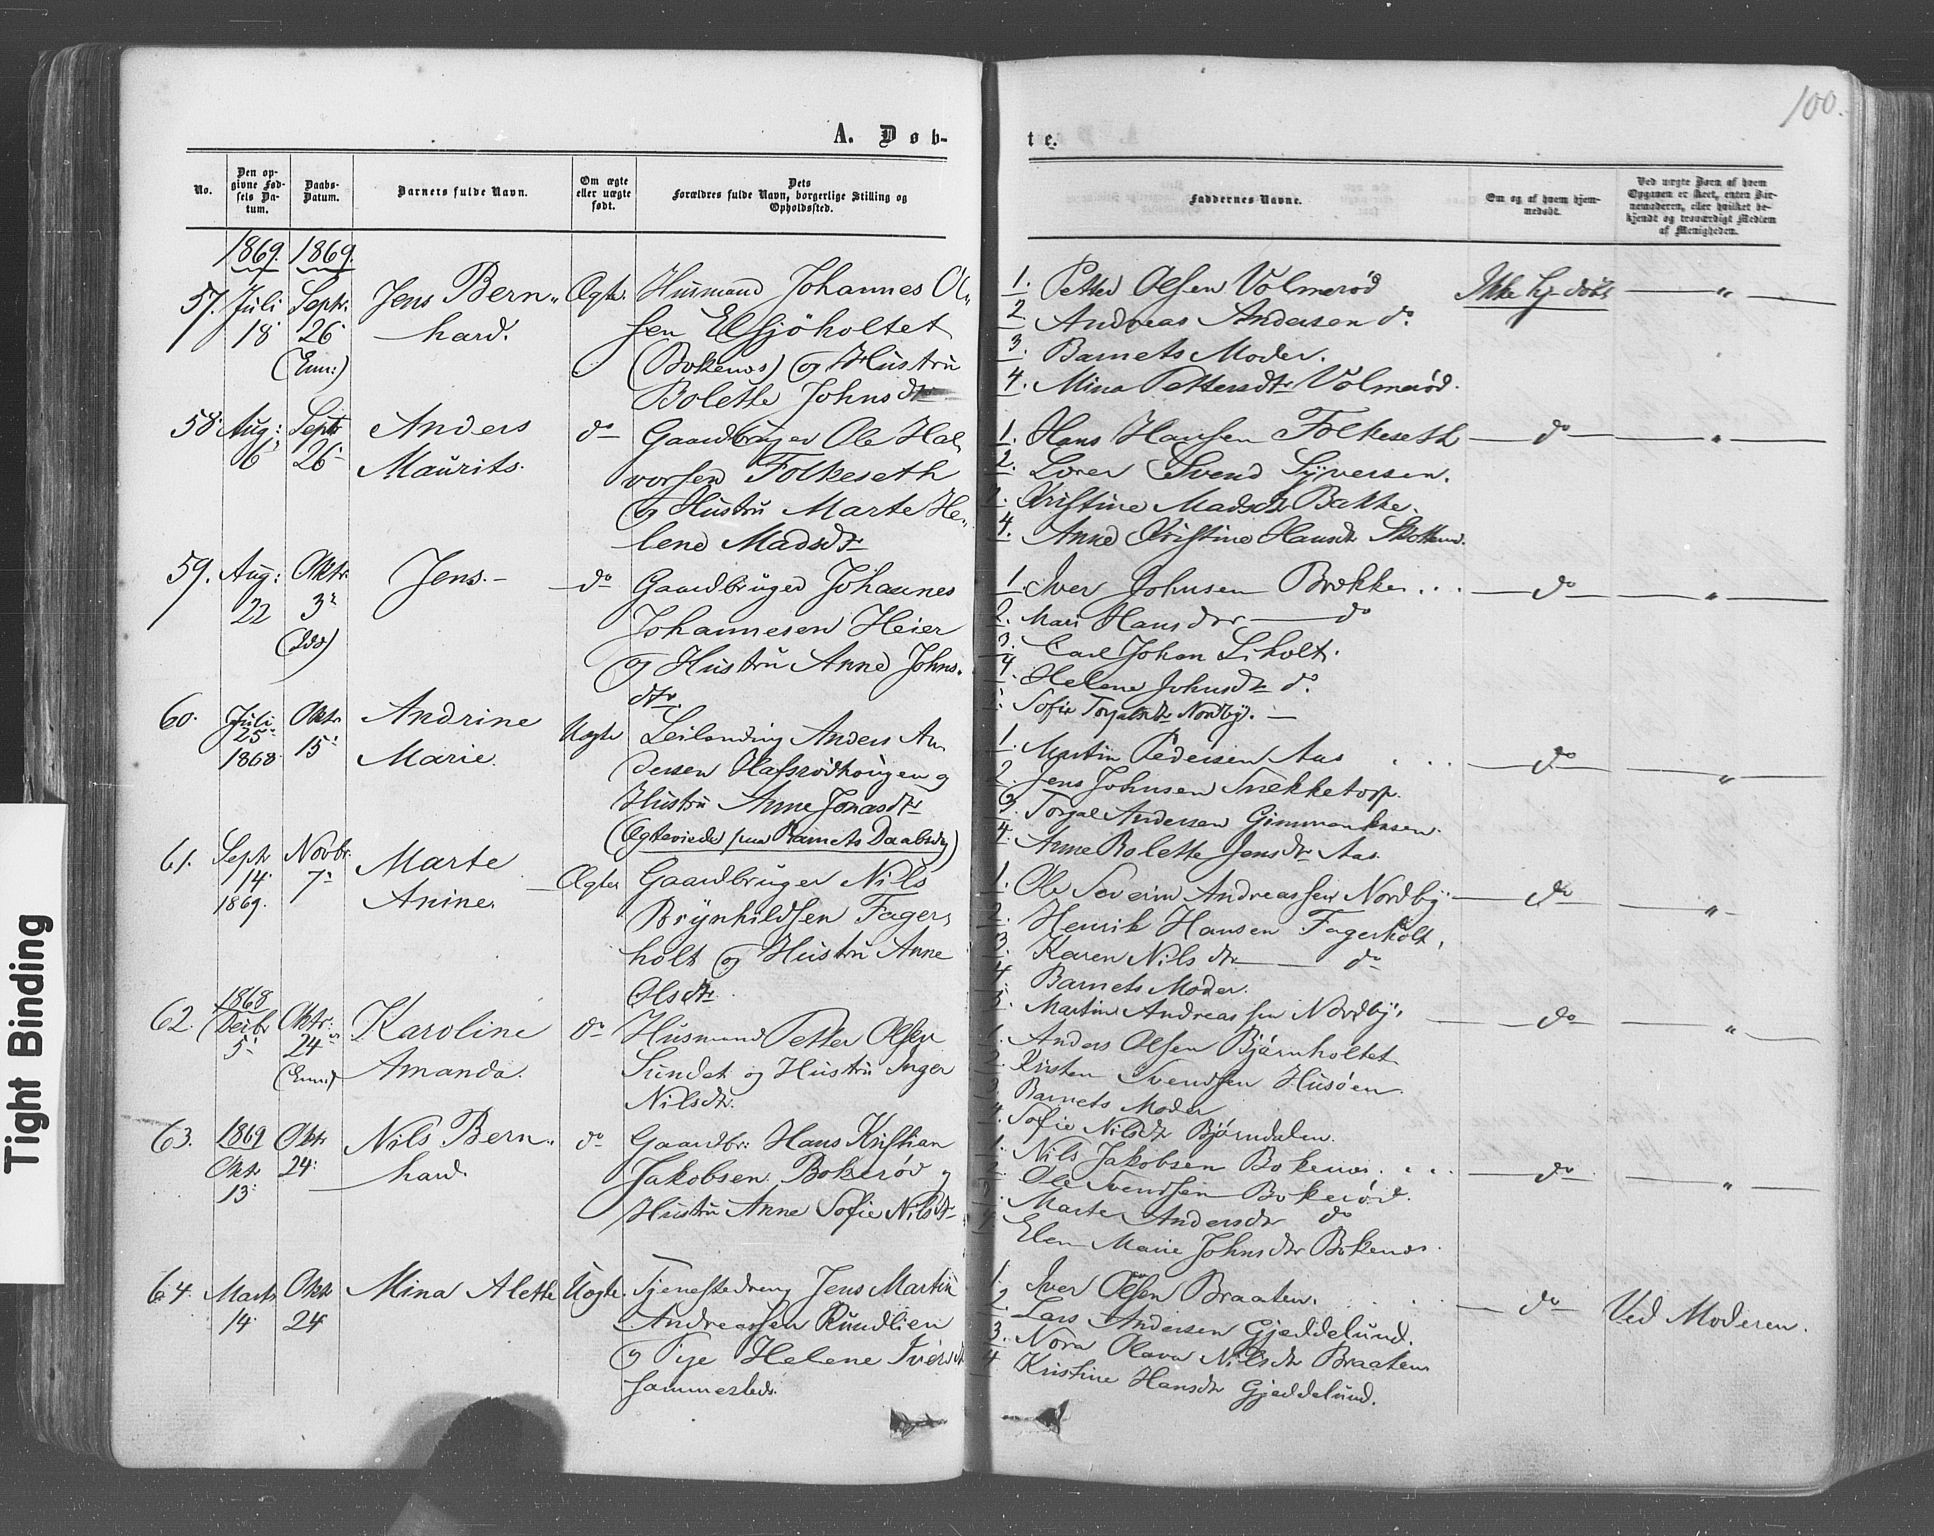 100.
A. Døb-
te.
No.
Den op-
givne Fød-
sels Da-
tum.
Daabs-
Datum.
Barnets fulde Navn.
Om ægte
eller uægte
født.
Dets
Forældres fulde Navn, borgerlige Stilling og
Opholdssted.
Faddernes Navne.
Om og af hvem hjem-
medøbt.
Ved uægte Børn af hvem
Opgaven er skeet, enten Bar-
nemoderen, eller hvilket be-
kjendt og troværdigt Medlem
af Menigheden.
1869. 1869.
57. Juli
18
Septr.
26
(Enn:)
Jens Bern-
hard.
Ægte.
Husmand Johannes Ol-
sen Elsjöholtet
(Bokenæs) og Hustru
Bolette Johnsdtr
1. Petter Olsen Volmerød
2 Andreas Andersen do.
3. Barnets Moder.
4. Mina Pettersdtr Volmerød.
Ikke hj. døbt — " —
58. Aug:
6
Septr
26
Anders
Maurits.
do
Gaardbruger Ole Hal-
vorsen Folkeseth
og Hustru Marte He-
lene Madsdtr
1. Hans Hansen Folkeseth
2. Svend Syversen.
3. Kristine Madsdtr Bakke.
4. Anne Kristine Hansdtr
— do — " —
59. Aug:
22
Oktr
3
Jens. -
do
Gaardbruger Johannes
Johannesen Heier
og Hustru Anne Johns-
dtr.
1. Iver Johnsen Brække . . .
2. Mari Hansdtr — do
3. Carl Johan Liholt.
4. Helene Johnsdtr do.
5. Sofie Torgalsdtr Nordby. —
— do — " —
60. Juli
25
1868
Oktr
15
Andrine
Marie.
Uægte
Leilending Anders An-
dersen Olafsrødhougen og
Hustru Anne Jonasdtr
(Ægteviede paa Barnets Daabsdag)
1. Martin Pedersen Aas
2. Jens Johnsen Snekketorp.
3. Torgal Andersen
4. Anne Bolette Jensdtr Aas.
— do — " —
61. Septr
14
1869.
Novbr.
7
Marte
Anine.
Ægte
Gaardbruger Nils
Brynhildsen Fager-
holt og Hustru Anne
Olsdtr.
1. Ole Severin Andreassen Nordby
2. Henrik Hansen Fagerholt,
3. Karen Nilsdtr — do
4. Barnets Moder.
5. Martin Andreassen Nordby,
— do — " —
62. 1868
Decbr
5
Oktr.
24
Karoline
Amanda.
do
Husmand Petter Olsen
Sundet og Hustru Inger
Nilsdtr.
1. Anders Olsen Bjørnholtet
2. Kristen Svendsen Husøen.
3. Barnets Moder
4. Sofie Nilsdtr Bjørndalen.
— do — " —
63. 1869
Oktr
13
Oktr
24
Nils Bern-
hard.
do
Gaardbr: Hans Kristian
Jakobsen Bokerød og
Hustru Anne Sofie Nilsdtr
1. Nils Jakobsen Bokenæs. . . .
2. Ole Svendsen Bokerød.
3. Marte Andersdtr do
4. Elen Marie Johnsdtr Bokenæs.
— do — " —
64. Marts
14
Oktr
24
Mina Alette
Uægte.
Tjenestedreng Jens Martin
Andreassen Rundlien
og Pige Helene Iversdtr
sammesteds.
1. Iver Olsen Braaten.
2. Lars Andersen Gjeddelund.
3. Nora Olava Nilsdtr Braaten
4. Kristine Hansdtr Gjeddelund.
— do —
Ved Moderen.
Tight Binding